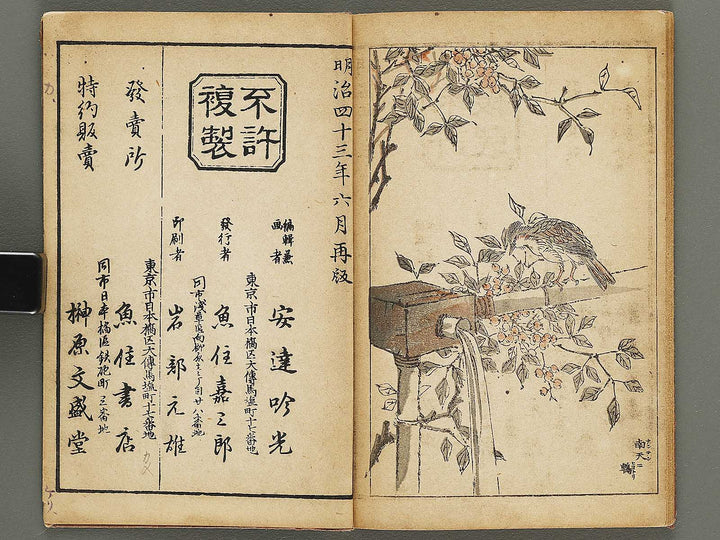 南天ニ
鶫
明治四十三年六月再版
不許
複製
編輯兼
画者
東京市日本橋区大傳馬塩町十七番地
安達吟光
發行者
魚住嘉三郎
印刷者
岩部元雄
發賣所
東京市日本橋区大傳馬塩町十七番地
魚住書店
特約販賣
同市日本橋区鉄砲町三番地
榊原文盛堂